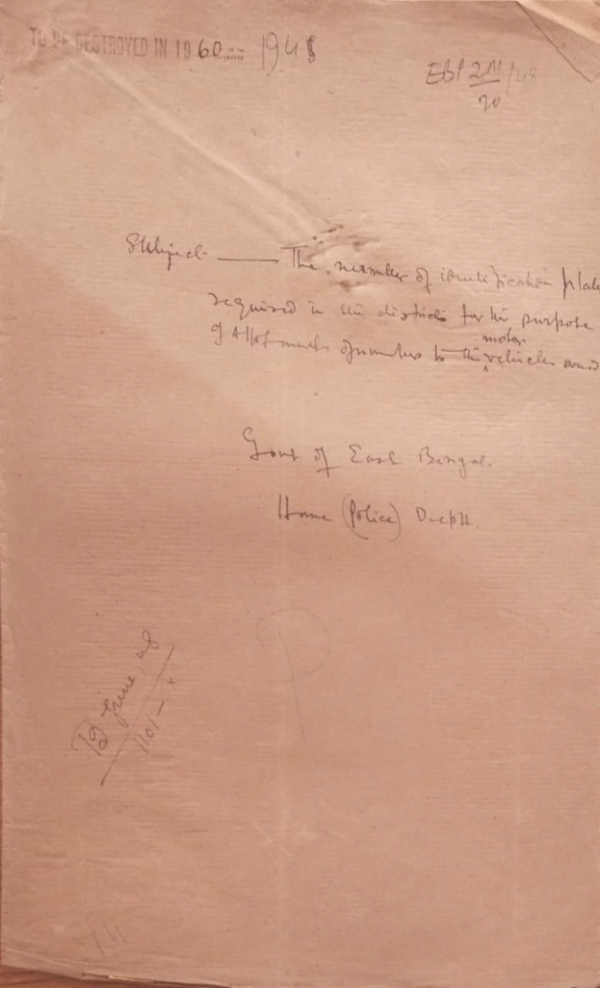 TO BE DESTROYED IN 1960 1948
EBP 2M/48
20
Subject — The number of identification plate
required in the districts for the purpose
of Allotments of number to the motor vehicles
Govt of East Bengal.
Home (Police) Deptt.
June, 48